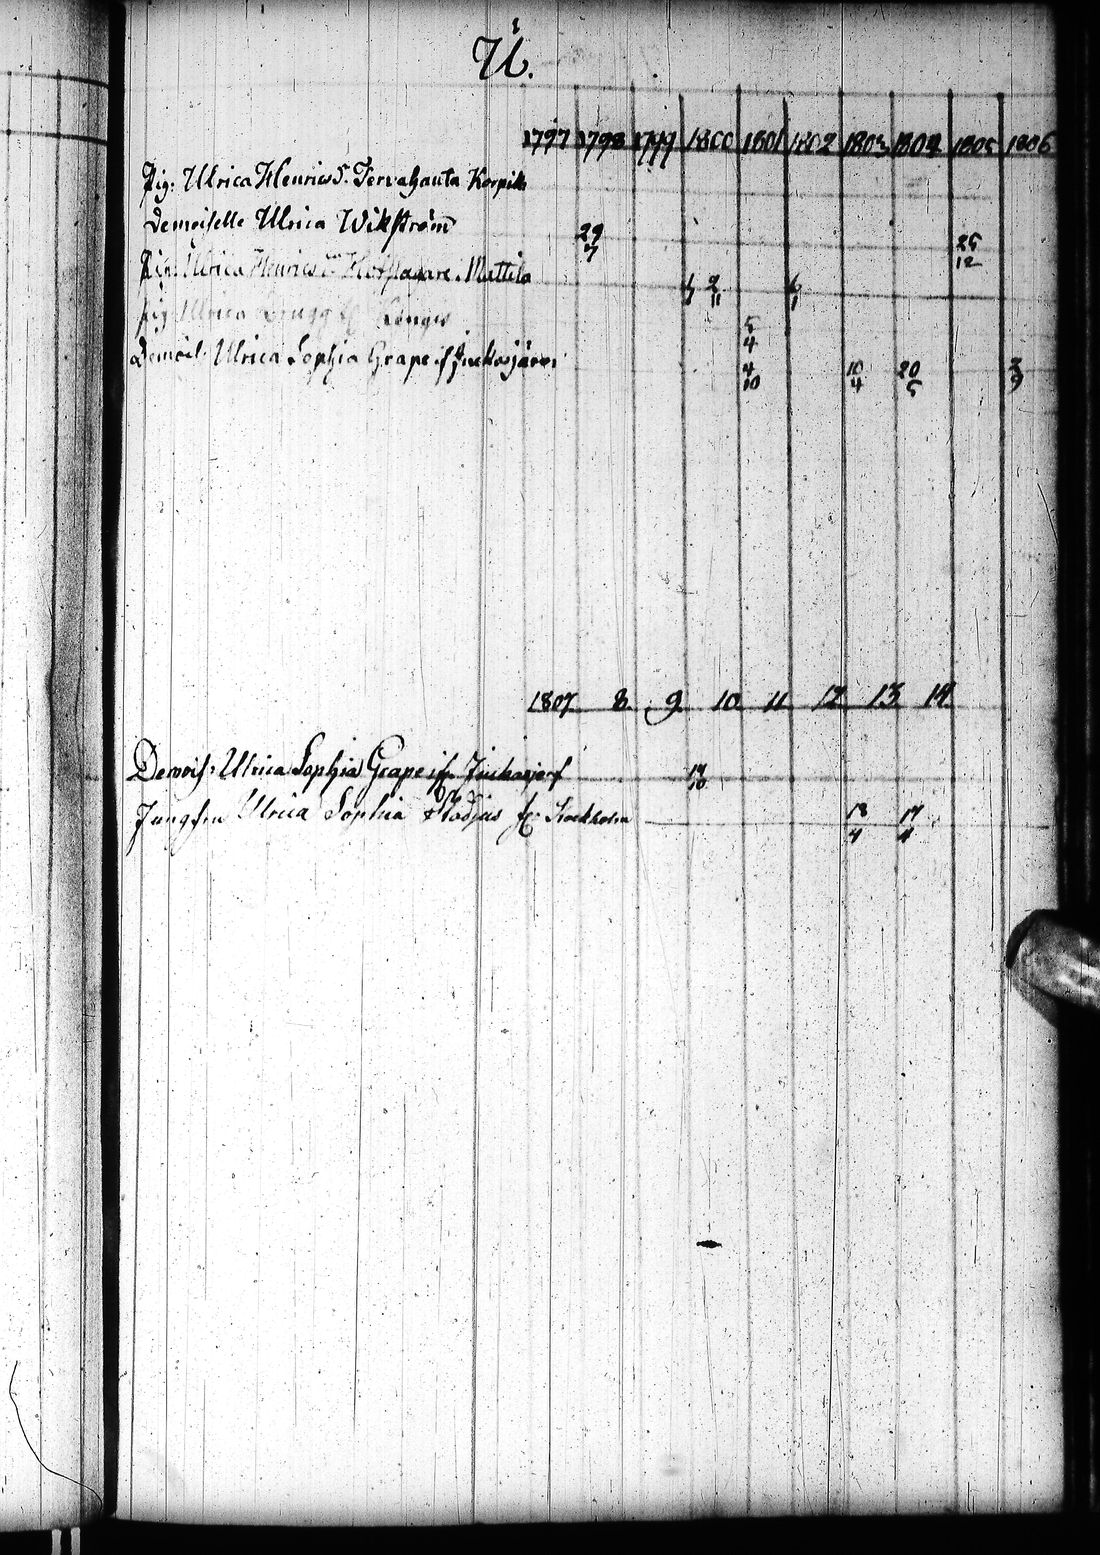 U.
1797 1798 1799 1800 1801 1802 1803 1804 1805 1806
Pig: Ulrica Henricsd. Tervahauta Korpik
Demoiselle Ulrica Wikström
29/7 25/12
Pig: Ulrica Henricsd. Mattila
2/11
Pig Ulrica Kengis
5/4
Demois: Ulrica Sophia Grape if Juckasjärvi
4/10 10/4 20/5 3/9
1807 8 9 10 11 12 13 14
Demois: Ulrica Sophia Grape ifr. Juckasjerf
14/10
Jungfru Ulrica Sophia fr: Stockholm
18/4 17/4